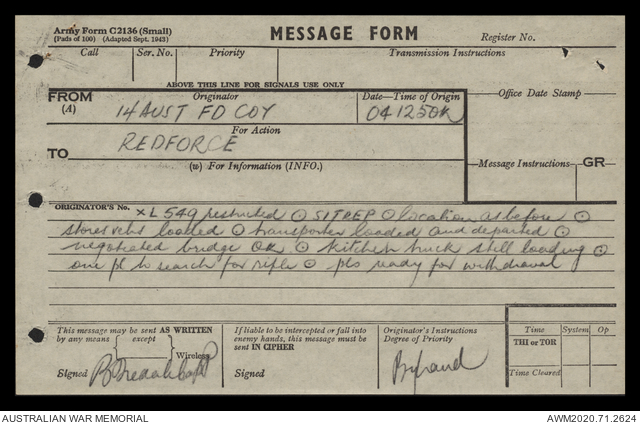 Army Form C2136 (Small)
(Pads of 100) (Adapted Sept. 1943)
MESSAGE FORM
Register No.
Call Ser. No. Priority Transmission Instructions
ABOVE THIS LINE FOR SIGNALS USE ONLY
FROM
(A)
Originator
14 AUST FD COY
Date—Time of Origin
041250K
Office Date Stamp
For Action
TO
REDFORCE
(w) For Information (INFO.)
Message Instructions GR
ORIGINATOR'S No.
XL 549 restricted ⊙ SITREP ⊙ location as before ⊙
stores vehs loaded ⊙ transporter loaded and departed ⊙
negotiated bridge OK ⊙ kitchen truck still loading ⊙
one pl to search for rifle ⊙ pls ready for withdrawal
This message may be sent AS WRITTEN
by any means except
Wireless
Signed
If liable to be intercepted or fall into
enemy hands, this message must be
sent IN CIPHER
Signed
Originator's Instructions
Degree of Priority
By hand
Time System Op
THI or TOR
Time Cleared
AUSTRALIAN WAR MEMORIAL
AWM2020.71.2624